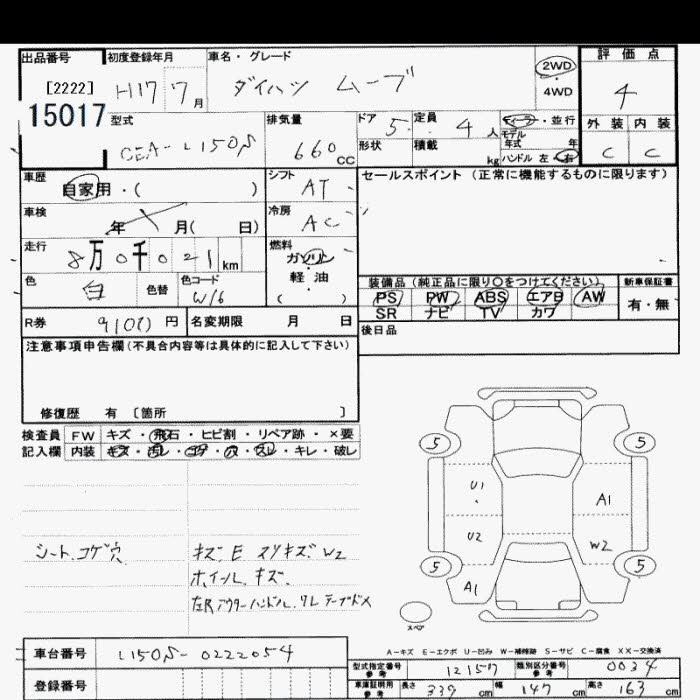 出品番号 初度登録年月 車名・グレード 評価点
[2222] H17 7月 ダイハツ ムーブ 2WD ・ 4WD 4
15017
型式 排気量 ドア 5 定員 4人 ディーラー・並行 外装 内装
CBA-L150S 660CC 形状 積載 kg モデル年式 年 C C
ハンドル 左・右
車歴 自家用・( ) シフト AT セールスポイント(正常に機能するものに限ります)
車検 年 月( 日) 冷房 AC
走行 8万0千021km 燃料 ガソリン・軽油 ( )
色 白 色替 色コード W16 装備品(純正品に限り○をつけてください) 新車保証書
PS PW ABS エアB AW 有・無
SR ナビ TV カワ
R券 9100円 名変期限 月 日 後日品
注意事項申告欄(不具合内容等は具体的に記入して下さい)
修復歴 有 〔箇所 〕
検査員 FW キズ・飛石・ヒビ割・リペア跡・×要
記入欄 内装 キズ・汚レ・コゲ・穴・スレ・キレ・破レ
5 5
U1 A1
U2 W2
シート.コゲ穴 キズ.E スリキズ W2
ホイール.キズ.
5 5
A1
左R アウターハンドル.ワレ テープドメ
スペア
A-キズ E-エクボ U-凹み W-補修跡 S-サビ C-腐食 XX-交換済
車台番号 L150S-0222054
型式指定番号 参考 12157 類別区分番号 参考 0034
登録番号
車庫証明用 参考 長さ 339cm 幅 147cm 高さ 163cm